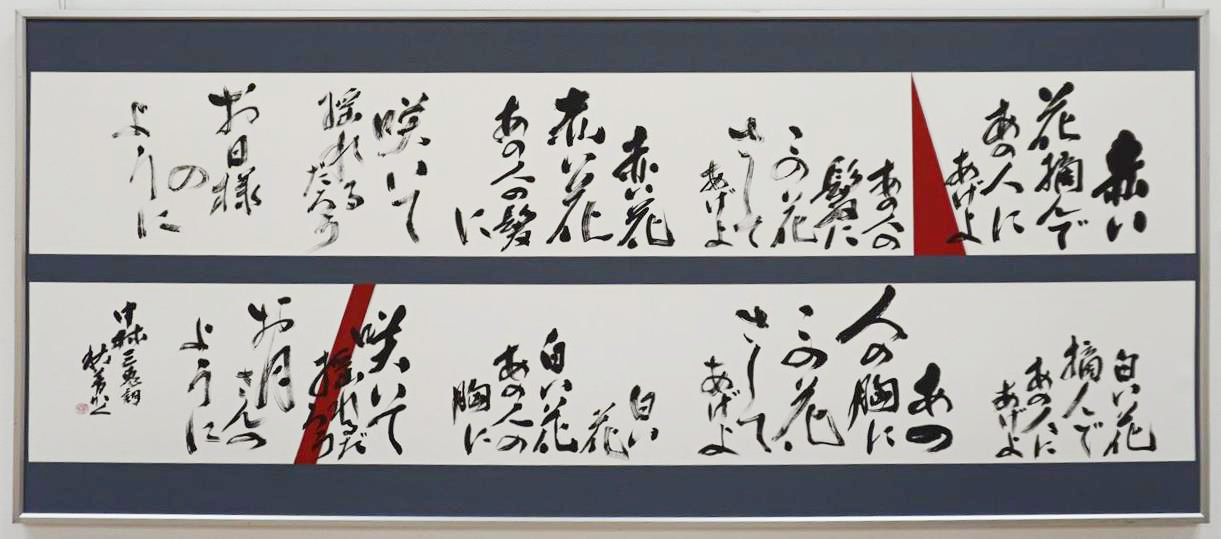 赤い
花摘んで
あの人に
あげよ
あの人の
髪に
この花
さして
あげよ
赤い花
赤い花
あの人の髪
に
咲いて
揺れる
だろう
お日様
の
ように
白い花
摘んで
あの人に
あげよ
あの
人の胸に
この花
さして
あげよ
白い
花
白い花
あの人の
胸に
咲いて
揺れるだ
ろう
お月
さんの
ように
中林三恵詞